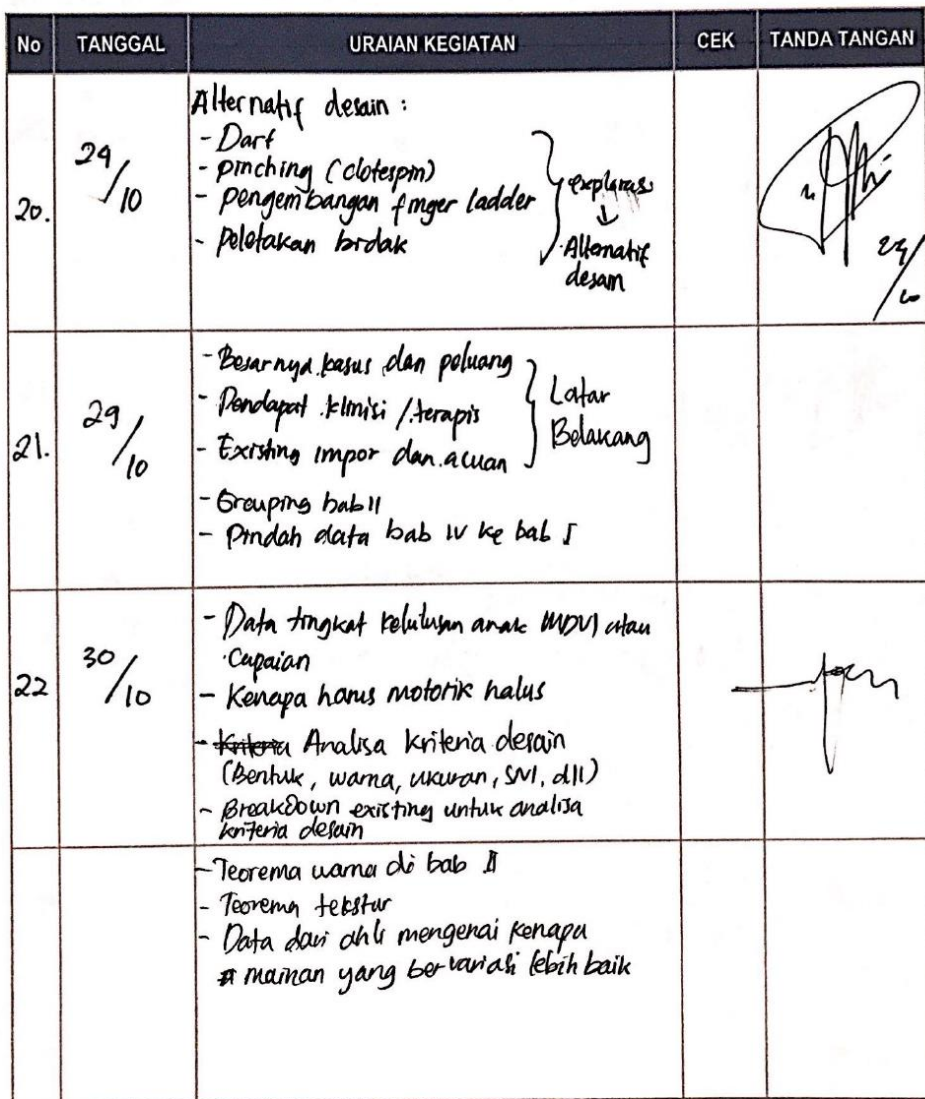 No TANGGAL URAIAN KEGIATAN CEK TANDA TANGAN
20.
24/10
Alternatif desain :
- Dart
- pinching (clotespin)
- pengembangan finger ladder
- peletakan bidak
explorasi
↓
Alternatif
desain
24/10
21.
29/10
- Besarnya kasus dan peluang
- Pendapat klinisi / terapis
- Existing impor dan acuan
Latar
Belakang
- Grouping bab II
- Pindah data bab IV ke bab I
22
30/10
- Data tingkat kelulusan anak MDVI atau
capaian
- Kenapa harus motorik halus
- Kriteria Analisa kriteria desain
(Bentuk, warna, ukuran, SNI, dll)
- BreakDown existing untuk analisa
kriteria desain
- Teorema warna di bab II
- Teorema tekstur
- Data dari ahli mengenai kenapa
mainan yang bervariasi lebih baik